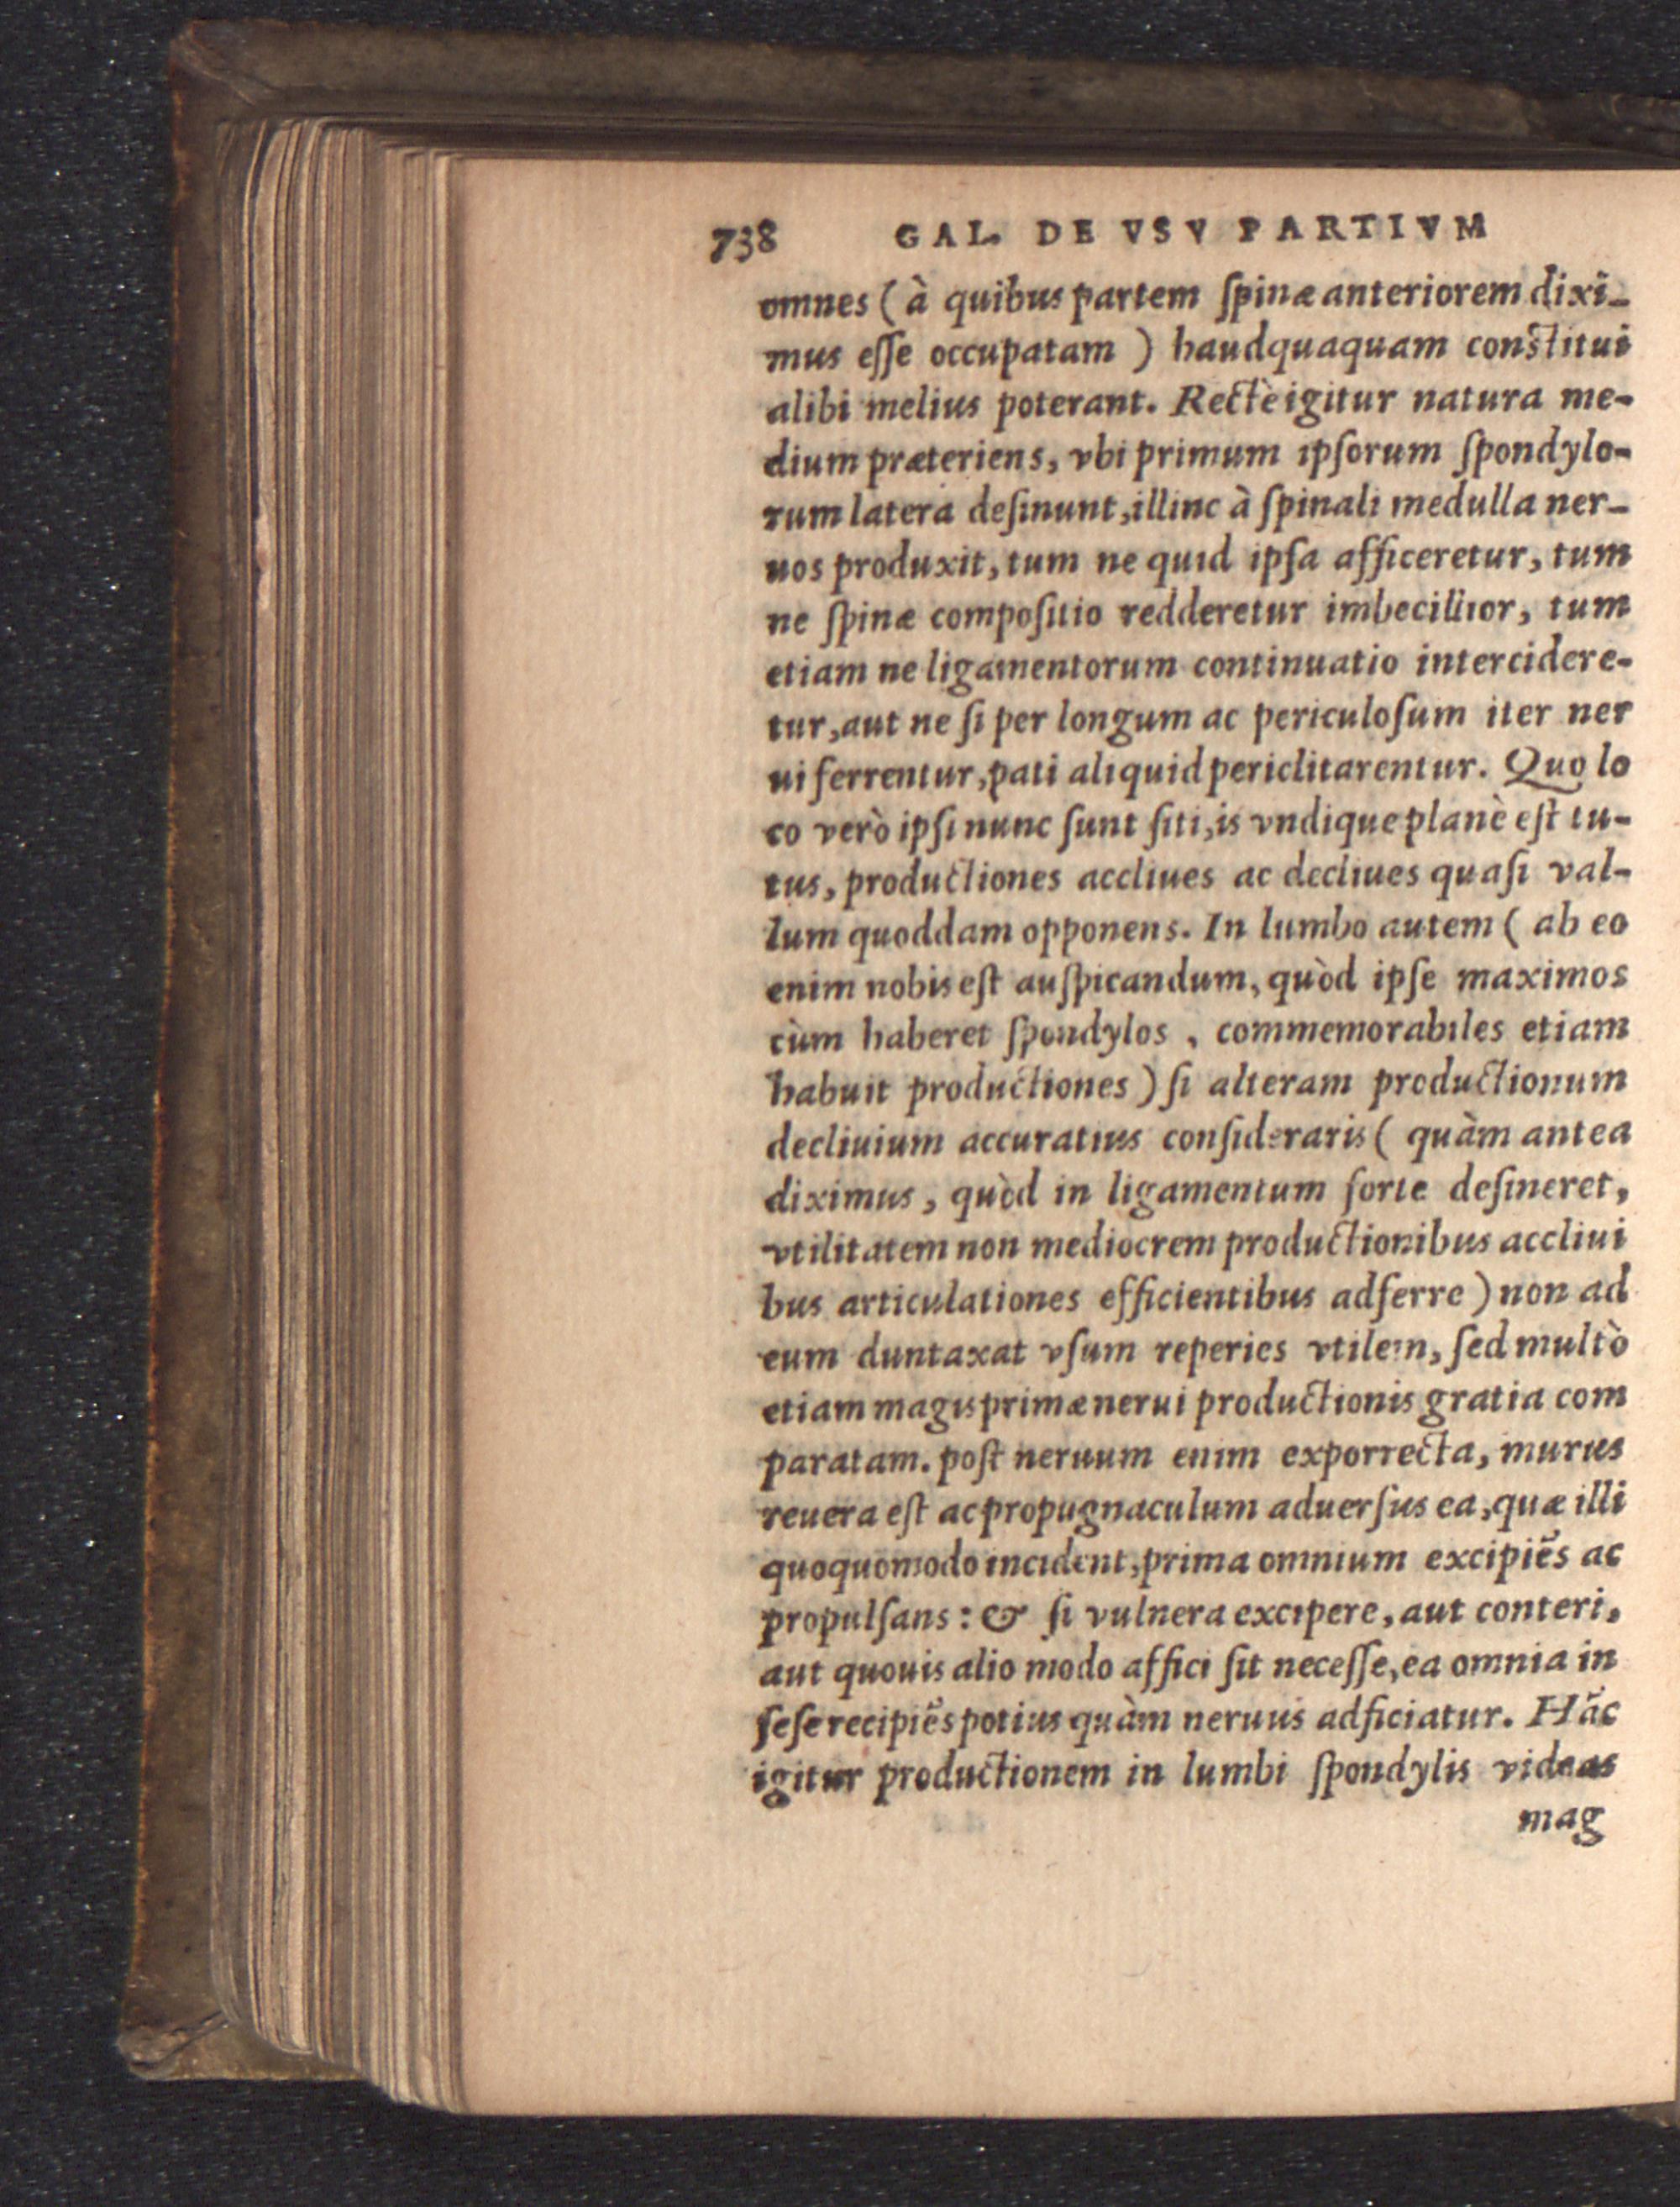 738 GAL. DE VSV PARTIVM
omnes (à quibus partem ſpinæ anteriorem dixi-
mus eſſe occupatam) haudquaquam constitui
alibi melius poterant. Rectè igitur natura me-
dium præteriens, vbi primum ipſorum ſpondylo-
rum latera deſinunt, illinc à ſpinali medulla ner-
uos produxit, tum ne quid ipſa afficeretur, tum
ne ſpinæ compoſitio redderetur imbecillior, tum
etiam ne ligamentorum continuatio intercidere-
tur, aut ne ſi per longum ac periculoſum iter ner
ui ferrentur, pati aliquid periclitarentur. Quo lo
co verò ipſi nunc ſunt ſiti, is vndique planè eſt tu-
tus, productiones accliues ac decliues quaſi val-
lum quoddam opponens. In lumbo autem (ab eo
enim nobis eſt auſpicandum, quòd ipſe maximos
cùm haberet ſpondylos, commemorabiles etiam
habuit productiones) ſi alteram productionum
decliuium accuratius conſideraris (quàm antea
diximus, quòd in ligamentum forte deſineret,
vtilitatem non mediocrem productionibus accliui
bus articulationes efficientibus adferre) non ad
eum duntaxat vſum reperies vtilem, ſed multò
etiam magis primæ nerui productionis gratia com
paratam. poſt neruum enim exporrecta, murus
reuera eſt ac propugnaculum aduerſus ea, quæ illi
quoquomodo incident, prima omnium excipiẽs ac
propulſans: & ſi vulnera excipere, aut conteri,
aut quouis alio modo affici ſit neceſſe, ea omnia in
ſeſe recipiẽs potius quàm neruus adficiatur. Hãc
igitur productionem in lumbi ſpondylis videas
mag